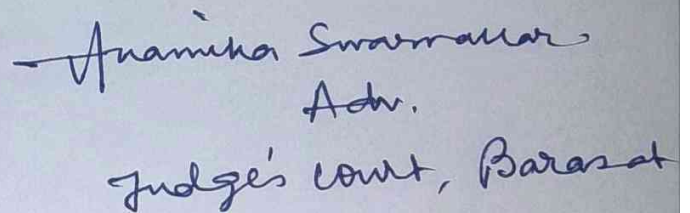 Anamika Swarnakar
Adv.
Judge's court, Barasat